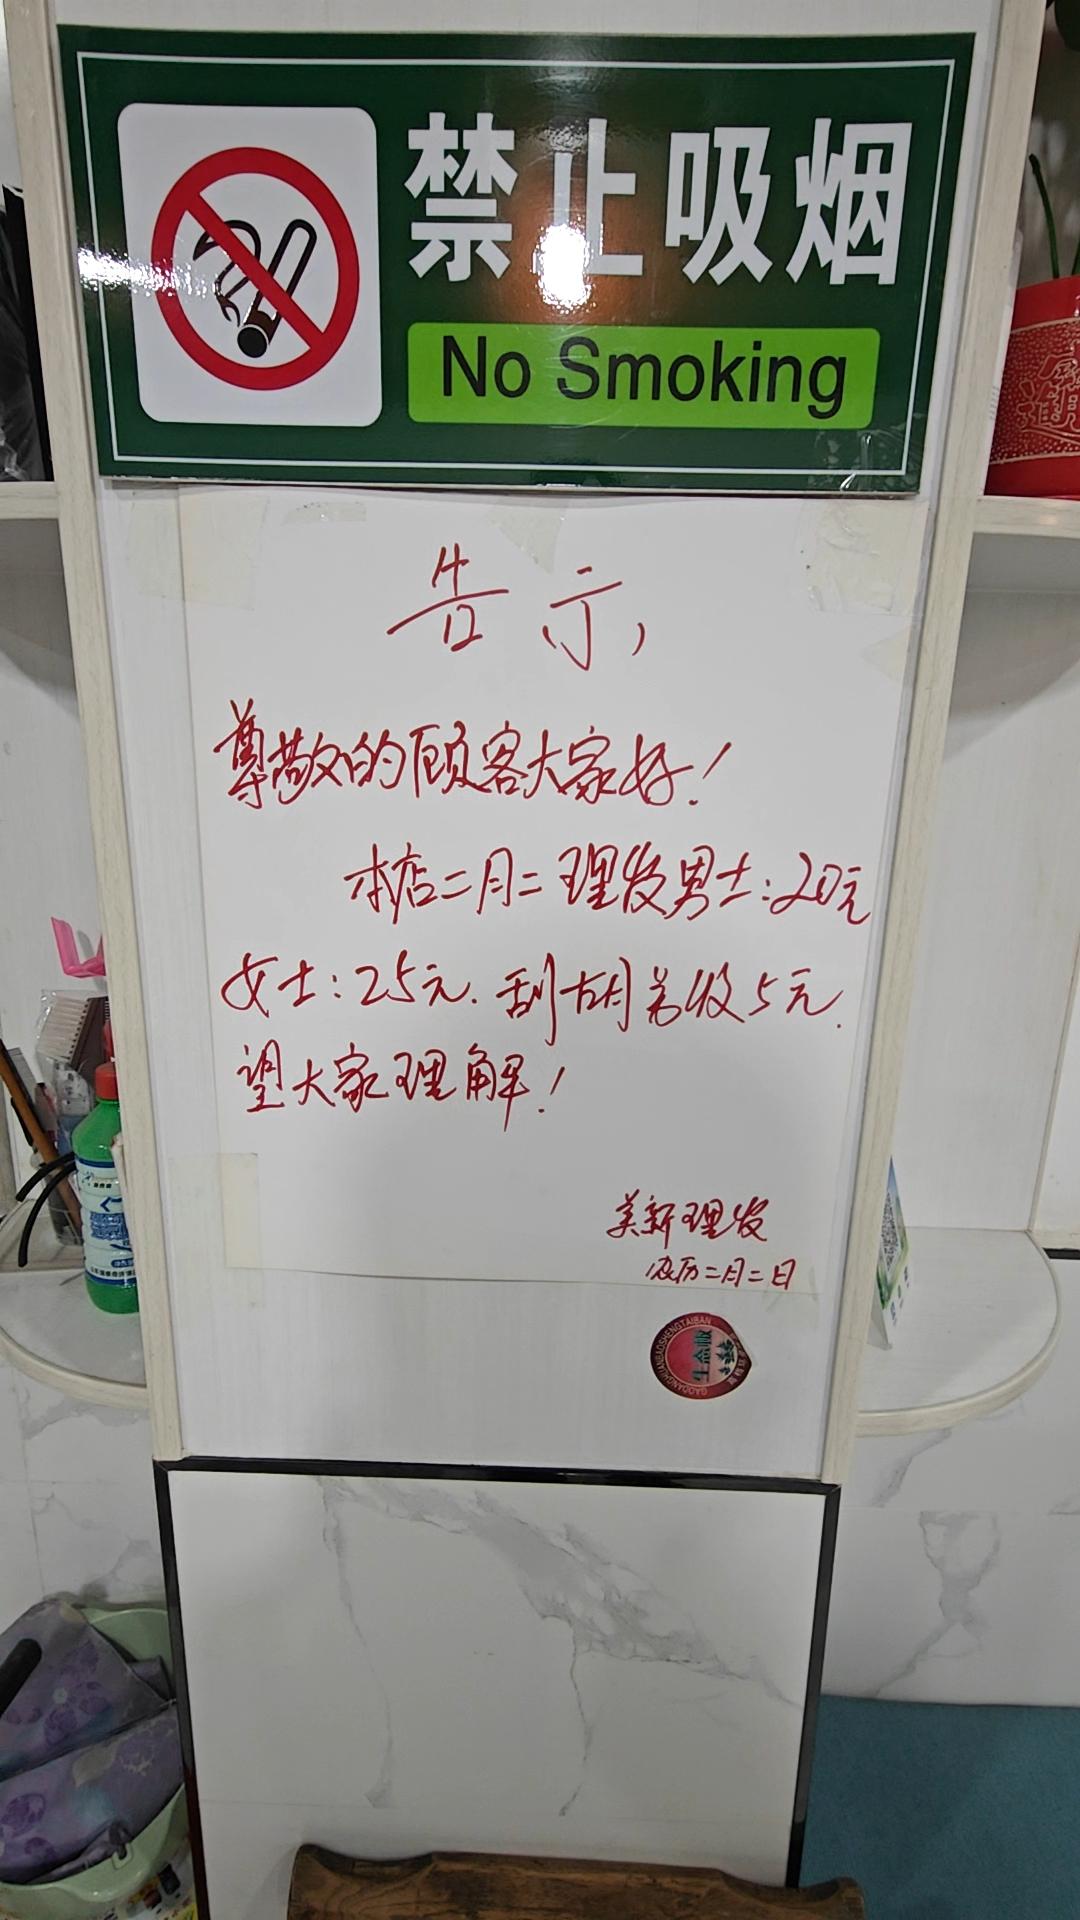 禁止吸烟
No Smoking
告示
尊敬的顾客大家好！
本店二月二理发男士：20元
女士：25元.刮胡另收5元.
望大家理解！
美新理发
农历二月二日
生态板
GAODANGHUANBAOSHENGTAIBAN